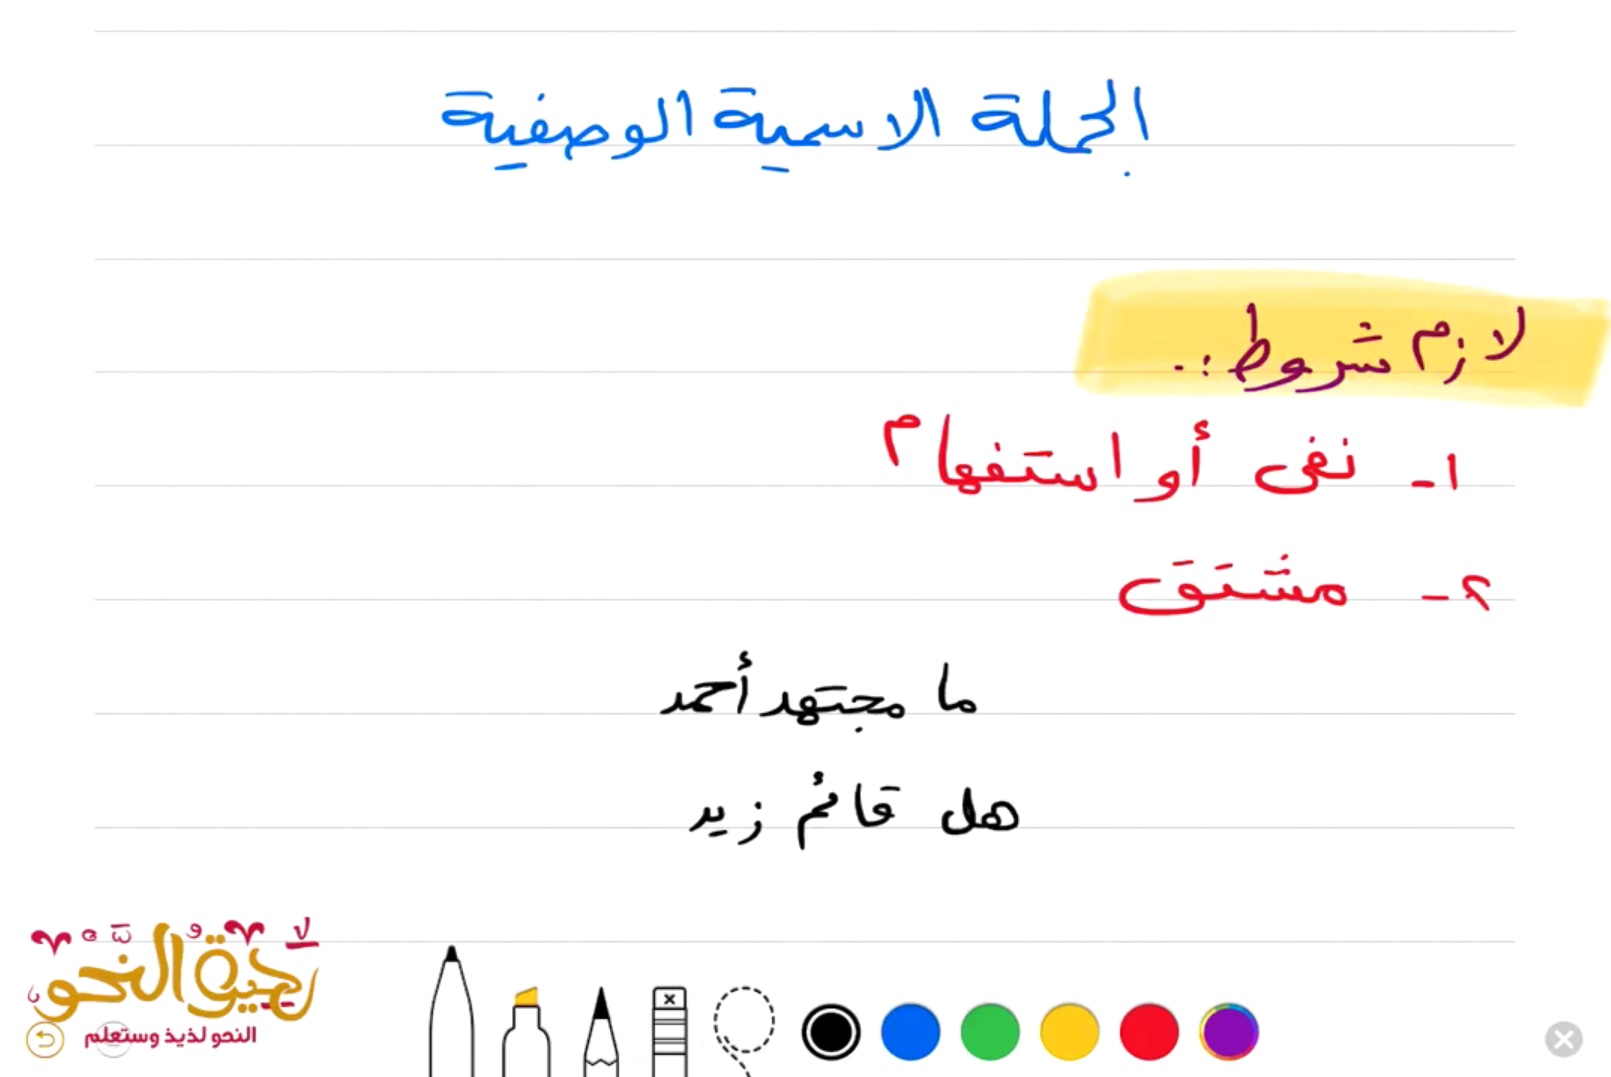 الجملة الاسمية الوصفية
لازم شروط :.
١- نفى أو استفهام
٢- مشتق
ما مجتهد أحمد
هل قائم زيد
رحيق النحو
النحو لذيذ وستعلم